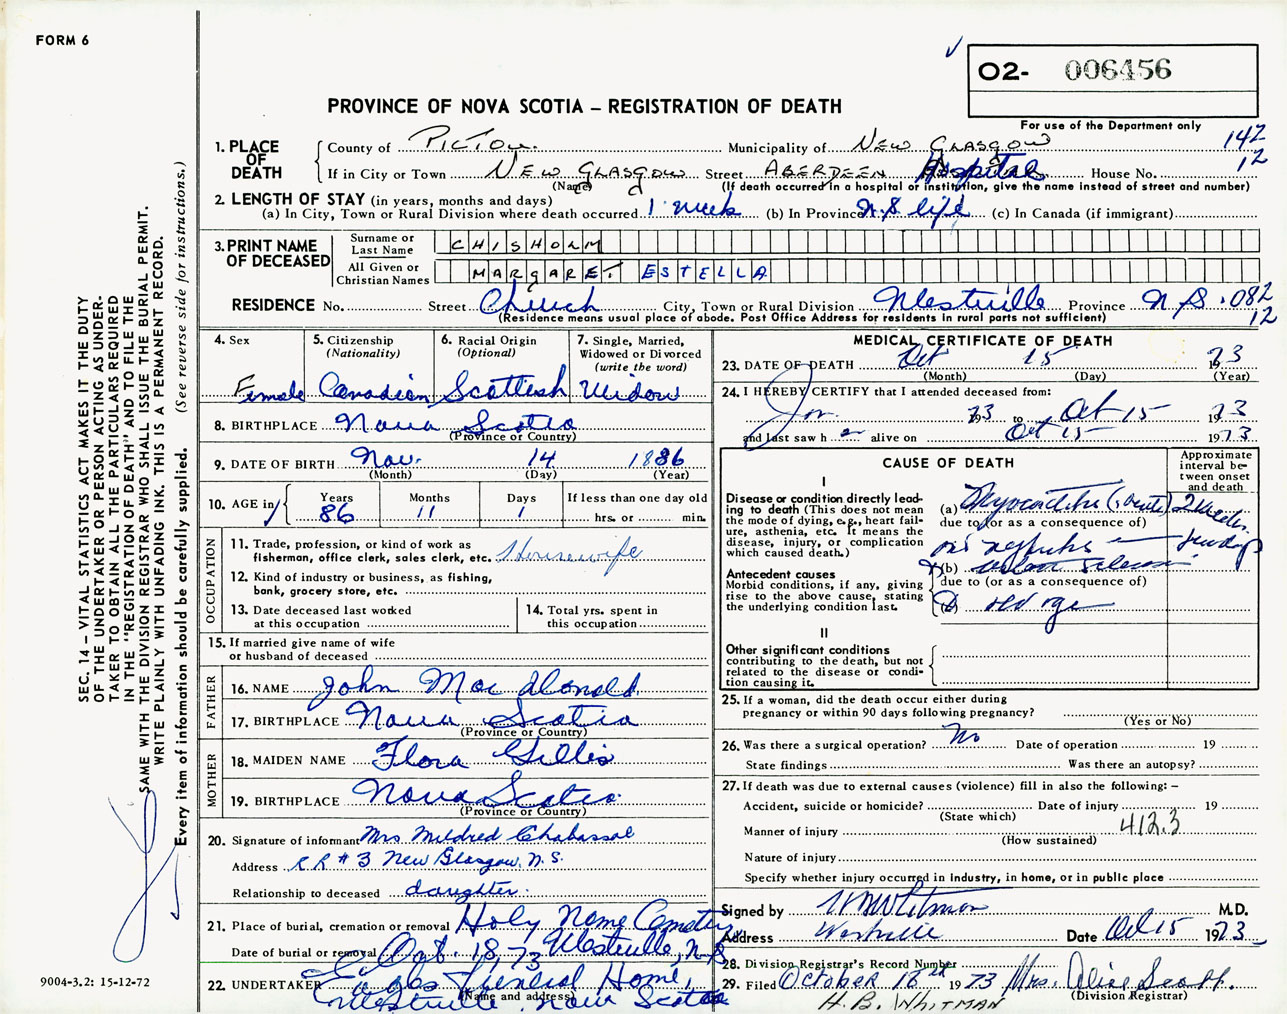 FORM 6
O2- 006456
PROVINCE OF NOVA SCOTIA – REGISTRATION OF DEATH
For use of the Department only
142
12
1. PLACE OF DEATH
County of PICTOU. Municipality of NEW GLASGOW
If in City or Town NEW GLASGOW Street ABERDEEN Hospital House No.
(Name) (If death occurred in a hospital or institution, give the name instead of street and number)
2. LENGTH OF STAY (in years, months and days)
(a) In City, Town or Rural Division where death occurred 1 week (b) In Province N.S life (c) In Canada (if immigrant)
3. PRINT NAME OF DECEASED
Surname or Last Name CHISHOLM
All Given or Christian Names MARGARET ESTELLA
RESIDENCE No. Street Church City, Town or Rural Division Westville Province N.S. 082
12
(Residence means usual place of abode. Post Office Address for residents in rural parts not sufficient)
4. Sex Female
5. Citizenship (Nationality) Canadian
6. Racial Origin (Optional) Scottish
7. Single, Married, Widowed or Divorced (write the word) Widow
8. BIRTHPLACE Nova Scotia
(Province or Country)
9. DATE OF BIRTH Nov. 14 1886
(Month) (Day) (Year)
10. AGE in Years 86 Months 11 Days 1 If less than one day old
hrs. or min.
OCCUPATION
11. Trade, profession, or kind of work as fisherman, office clerk, sales clerk, etc. Housewife
12. Kind of industry or business, as fishing, bank, grocery store, etc.
13. Date deceased last worked at this occupation
14. Total yrs. spent in this occupation
15. If married give name of wife or husband of deceased
FATHER
16. NAME John Mac Donald
17. BIRTHPLACE Nova Scotia
(Province or Country)
MOTHER
18. MAIDEN NAME Flora Gillis
19. BIRTHPLACE Nova Scotia
(Province or Country)
20. Signature of informant Mrs Mildred Chabassol
Address R.R # 3 New Glasgow, N.S.
Relationship to deceased daughter.
21. Place of burial, cremation or removal Holy Name Cemetery
Date of burial or removal Oct. 18, 73 Westville, N.S
22. UNDERTAKER Eagles Funeral Home,
(Name and address)
Westville, Nova Scotia
MEDICAL CERTIFICATE OF DEATH
23. DATE OF DEATH Oct 15 73
(Month) (Day) (Year)
24. I HEREBY CERTIFY that I attended deceased from:
Jan. 1973 to Oct 15 1973
and last saw h er alive on Oct 15 1973
CAUSE OF DEATH
Approximate interval between onset and death
I
Disease or condition directly leading to death (This does not mean the mode of dying, e.g., heart failure, asthenia, etc. It means the disease, injury, or complication which caused death.)
(a) Myocarditis (acute) 2 weeks
due to (or as a consequence of)
Antecedent causes
Morbid conditions, if any, giving rise to the above cause, stating the underlying condition last.
(b)
due to (or as a consequence of)
(c) old age
II
Other significant conditions contributing to the death, but not related to the disease or condition causing it.
25. If a woman, did the death occur either during pregnancy or within 90 days following pregnancy?
(Yes or No)
26. Was there a surgical operation? No Date of operation 19
State findings Was there an autopsy?
27. If death was due to external causes (violence) fill in also the following: –
Accident, suicide or homicide? Date of injury 19
(State which)
412.3
Manner of injury
(How sustained)
Nature of injury
Specify whether injury occurred in industry, in home, or in public place
Signed by H B Whitman M.D.
Address Westville Date Oct 15 1973
28. Division Registrar's Record Number
29. Filed October 18th 1973 Mrs. Alice Scott.
(Division Registrar)
H. B. WHITMAN
SEC. 14 – VITAL STATISTICS ACT MAKES IT THE DUTY
OF THE UNDERTAKER OR PERSON ACTING AS UNDER-
TAKER TO OBTAIN ALL THE PARTICULARS REQUIRED
IN THE "REGISTRATION OF DEATH" AND TO FILE THE
SAME WITH THE DIVISION REGISTRAR WHO SHALL ISSUE THE BURIAL PERMIT.
WRITE PLAINLY WITH UNFADING INK. THIS IS A PERMANENT RECORD.
Every item of information should be carefully supplied. (See reverse side for instructions.)
9004-3.2: 15-12-72